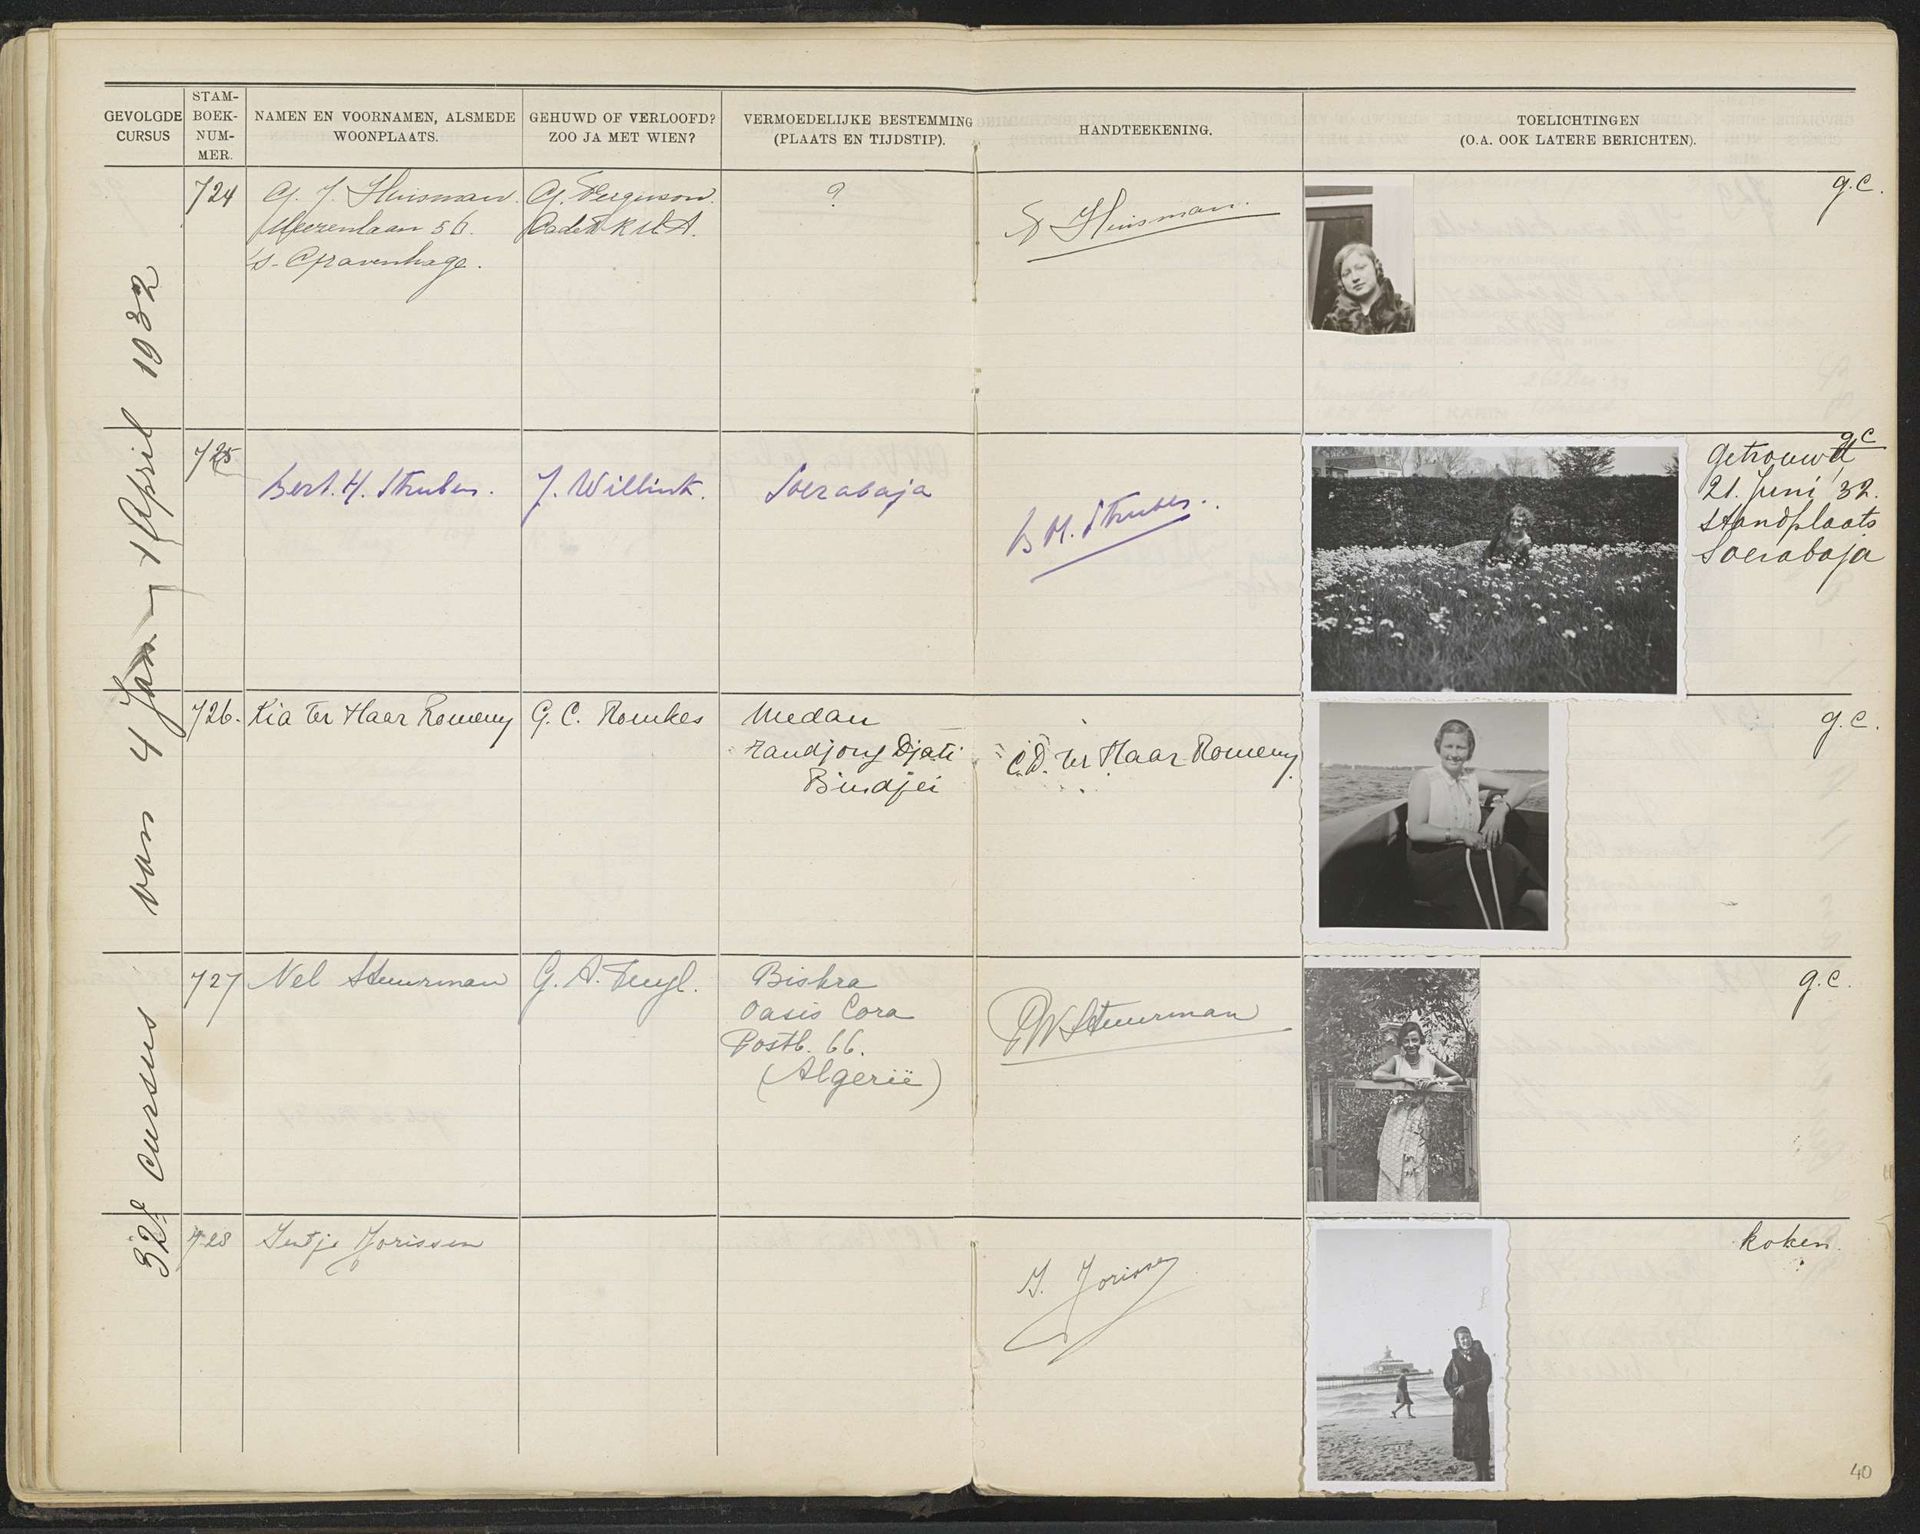 GEVOLGDE
CURSUS
STAM-
BOEK-
NUM-
MER.
NAMEN EN VOORNAMEN, ALSMEDE
WOONPLAATS.
GEHUWD OF VERLOOFD?
ZOO JA MET WIEN?
VERMOEDELIJKE BESTEMMING
(PLAATS EN TIJDSTIP).
HANDTEEKENING.
TOELICHTINGEN
(O.A. OOK LATERE BERICHTEN).
32e cursus van 4 Jan - 1 April 1932
724
J. Huisman.
56.
's-Gravenhage.
G. Ferguson.
Cadet K.M.A.
?
Huisman.
g.c.
725
Bert. H. Struben.
J. Willink.
Soerabaja
B H. Struben.
g c
getrouwd
21. Juni '32.
standplaats
Soerabaja
726.
Kia ter Haar Romeny
G. C. Romkes
Medan
Tandjong Djati
Bindjei
C.D. ter Haar Romeny
g.c.
727
Nel Stuurman
G. A.
Biskra
Oasis Cora
Postb. 66.
(Algerië)
Stuurman
g.c.
728
Jorissen
J. Jorissen
koken.
40